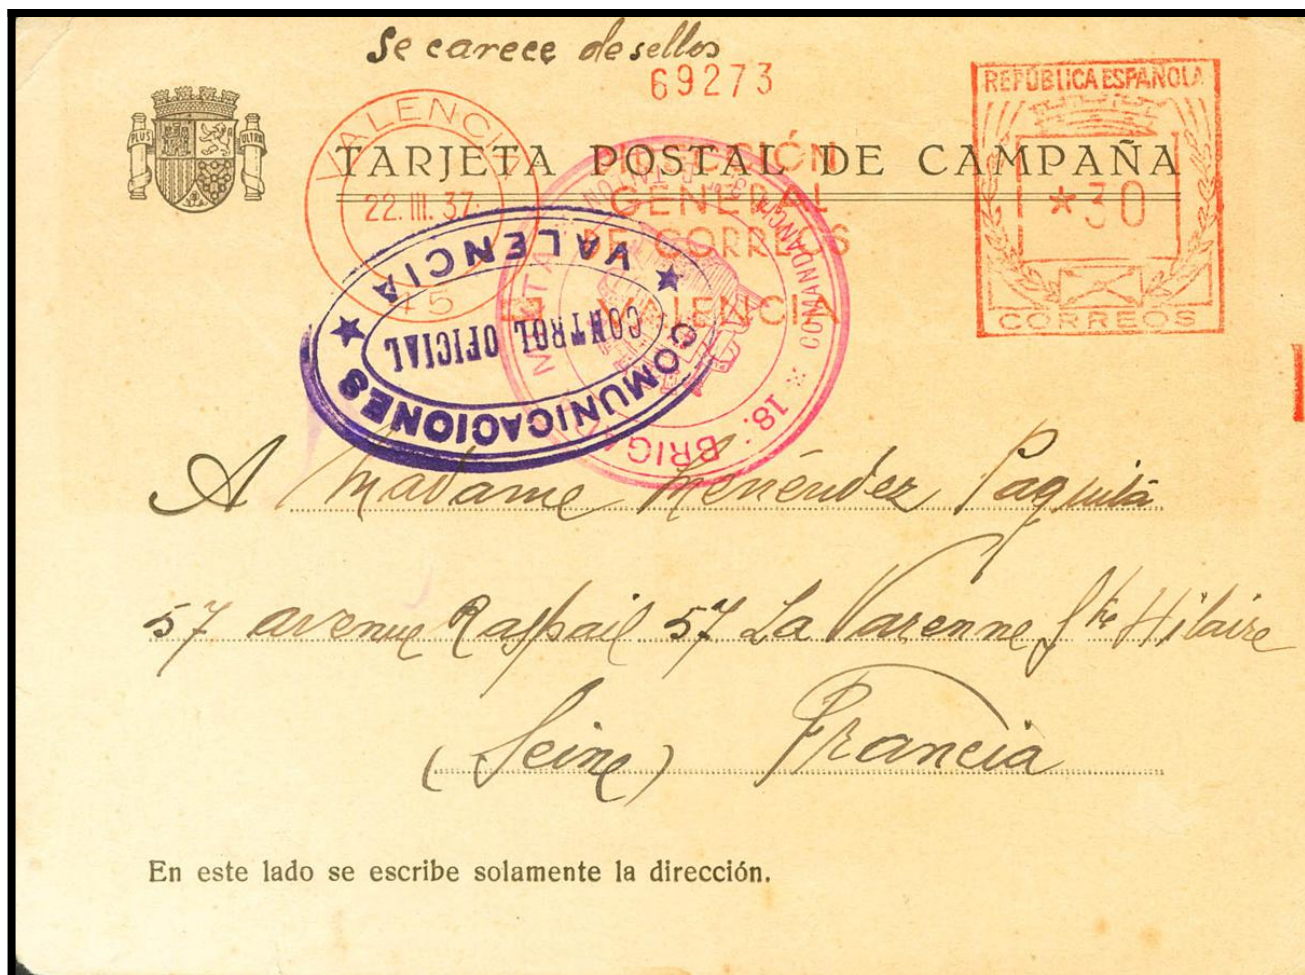 Se carece de sellos
69273
REPÚBLICA ESPAÑOLA
PLUS ULTRA
VALENCIA
TARJETA POSTAL DE CAMPAÑA
22.III.37
GENERAL
DE CORREOS
VALENCIA
*30
CORREOS
COMUNICACIONES
★ VALENCIA ★
CONTROL OFICIAL
18. BRIG MIXTA
COMANDANCIA
A Madame Menéndez Paquita
57 avenue Raspail 57 La Varenne Ste Hilaire
(Seine) Francia
En este lado se escribe solamente la dirección.